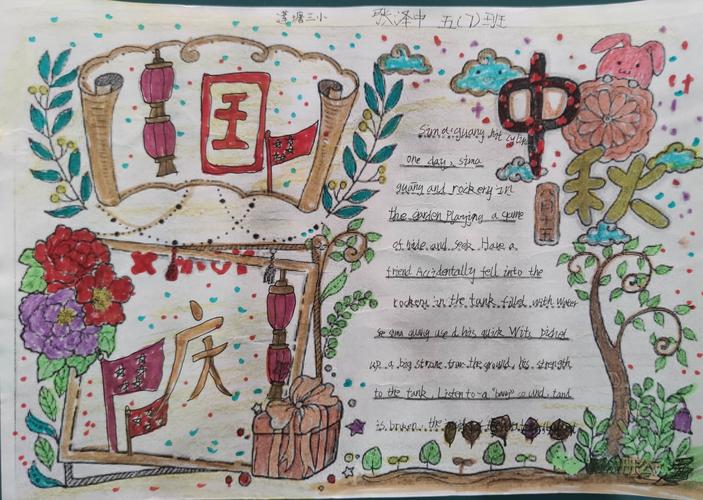 塘三小 张泽中 五(7)班
国
庆
中
秋
Sima guang hit
one day, sima
guang and rockery in
the garden Planying a game
of hide and seek. Have a
friend Accidentally fell into the
rockery in the tank filled with water
se sima guang use d his quick Wits, Picked
up a big stone from the ground, his strength
to the tank, Listen to a "bang" sound, tand
is broken, the